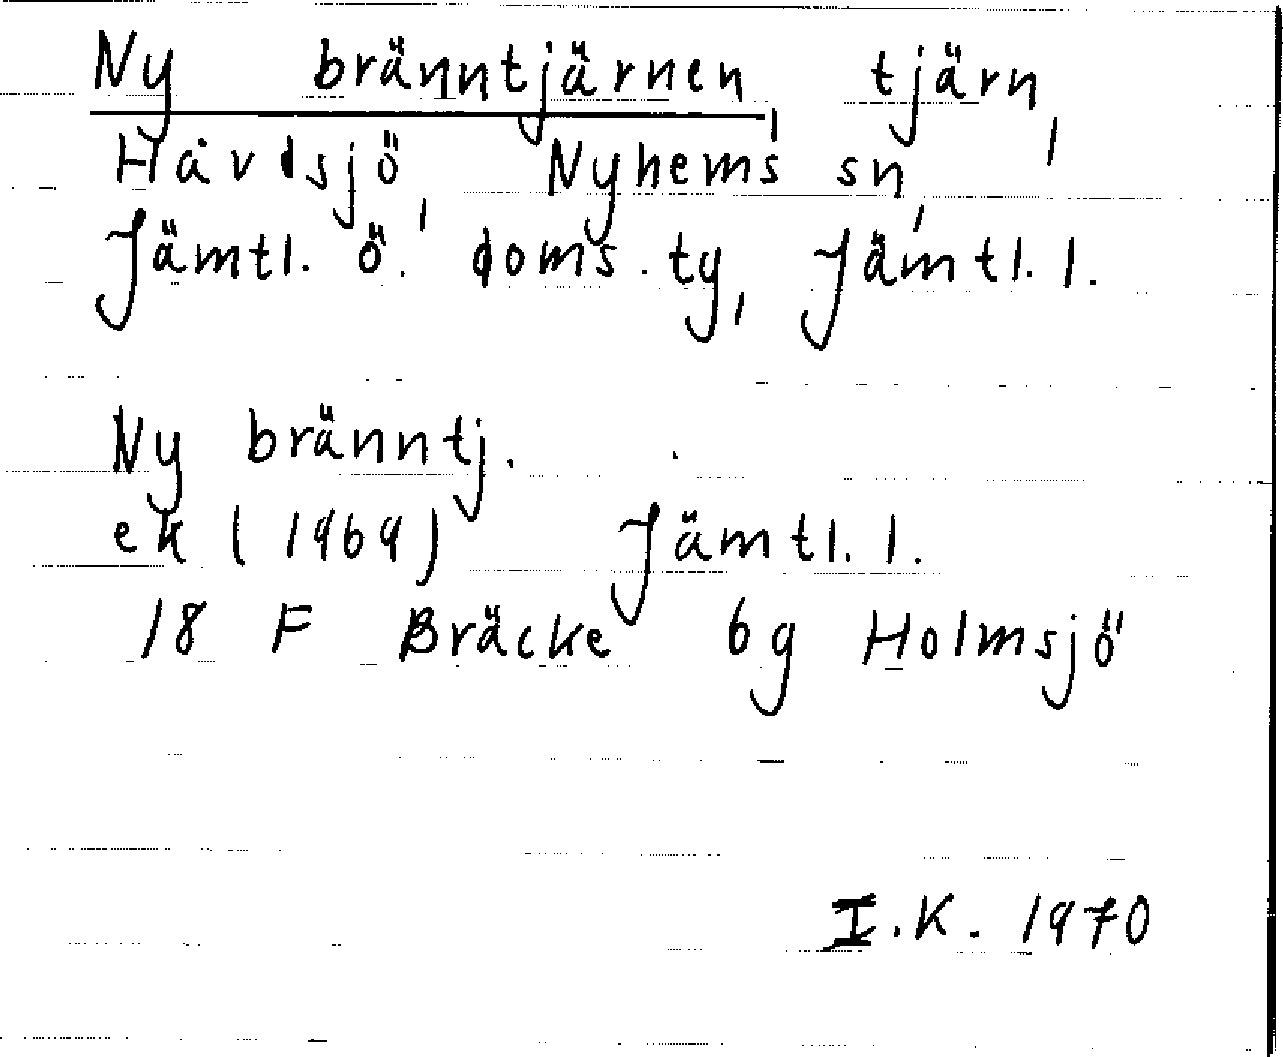 Ny bränntjärnen, tjärn,
Havdsjö, Nyhems sn,
Jämtl. ö. doms. ty, Jämtl. l.
Ny bränntj.
ek (1969) Jämtl. l.
18 F Bräcke 6g Holmsjö
I.K. 1970